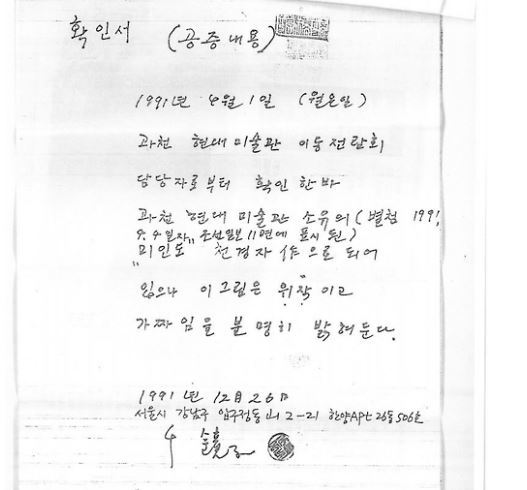 확인서 (공증내용)
1991년 4월 1일 (월요일)
과천 현대미술관 이동전람회
담당자로부터 확인한바
과천 현대 미술관 소유의 (별첨 1991
4.4일자 조선일보 11면에 표시된)
"미인도" 천경자 作으로 되어
있으나 이 그림은 위작이고
가짜임을 분명히 밝혀둔다.
1991년 12月 26日
서울시 강남구 압구정동 山 2-21 한양APt 26동 506호